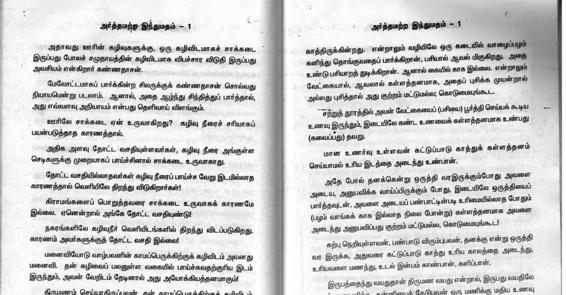 அர்த்தமற்ற இந்துமதம் - 1
அதாவது ஊரின் கழிவுகளுக்கு, ஒரு கழிவிடமாகச் சாக்கடை
இருப்பது போலச் சமுதாயத்தின் கழிவிடமாக விபச்சார விடுதி இருப்பது
அவசியம் என்கிறார் கண்ணதாசன்.
மேலோட்டமாகப் பார்க்கின்ற சிலருக்குக் கண்ணதாசன் சொல்வது
நியாயமென்று படலாம். ஆனால், அதை ஆழ்ந்து சிந்தித்துப் பார்த்தால்,
அது எவ்வளவு அநியாயம் என்பது தெளிவாய் விளங்கும்.
ஊரிலே சாக்கடை ஏன் உருவாகிறது? கழிவு நீரைச் சரியாகப்
பயன்படுத்தாத காரணத்தால்.
அதிக அளவு தோட்ட வசதியுள்ளவர்கள், கழிவு நீரை அங்குள்ள
செடிகளுக்கு முறையாகப் பாய்ச்சினால் சாக்கடை உருவாகாது.
தோட்ட வசதியில்லாதவர்கள் கழிவு நீரைப் பாய்ச்ச வேறு இடமில்லாத
காரணத்தால் வெளியிலே திறந்து விடுகிறார்கள்!
கிராமங்களைப் பொறுத்தவரை சாக்கடை உருவாகக் காரணமே
இல்லை. ஏனென்றால் அங்கே தோட்ட வசதியுண்டு!
நகரங்களிலே கழிவுநீர் வெளியிடங்களில் திறந்து விடப்படுகிறது.
காரணம் அவர்களுக்குத் தோட்ட வசதி இல்லை!
மனைவியோடு வாழ்பவனின் காமப்பெருக்கிற்குக் கழிவிடம் அவனது
மனைவி. தன் கழிவைப் பலனுள்ள வகையில் பாய்ச்சுவதற்குரிய இடம்
இருந்தும், அவன் வேறிடம் தேடினால் அது அயோக்கியத்தனமாகும்!
திருமணம் செய்யாதிருப்பவன், தன் காமப்பெருக்கிற்குக் கழிவிடம்
அர்த்தமற்ற இந்துமதம் - 1
காத்திருக்கிறது. என்றாலும் வழியிலே ஒரு கடையில் வாழைப்பழம்
கனிந்து தொங்குவதைப் பார்க்கிறான், பசியால் ஆவல் மிகுகிறது. அதை
உண்டு பசியாறத் துடிக்கிறான். ஆனால் கையில் காசு இல்லை. என்றாலும்
வேட்கையால், ஆவலால் கள்ளத்தனமாக, அதைப் புசிக்க முயன்றால்
அல்லது புசித்தால் அது குற்றம் மட்டுமல்ல; கொடுமையுங்கூட!
சற்றுத் தூரத்தில் அவன் வேட்கையைப் (பசியை) பூர்த்தி செய்யக் கூடிய
உணவு இருந்தும், இடையிலே கண்ட உணவைக் கள்ளத்தனமாக உண்பது
(சுவைப்பது) தவறு.
மான உணர்வு உள்ளவன் கட்டுப்பாடு காத்துக் கள்ளத்தனம்
செய்யாமல் உரிய இடத்தை அடைந்து உண்பான்.
அதே போல் தனக்கென்று ஒருத்தி வரஇருக்கும்போது அவளை
அடைய, அனுபவிக்க வாய்ப்பிருக்கும் போது, இடையிலே ஒருத்தியைப்
பார்த்தவுடன், அவளை அடையப் பண்பாட்டின்படி உரிமையில்லாத போதும்
(பழம் வாங்கக் காசு இல்லாத நிலை போன்று) கள்ளத்தனமாக அவளை
அடைந்து அனுபவிப்பது குற்றம் மட்டுமல்ல, கொடுமையுங்கூட!
கற்பு நெறியுள்ளவன், பண்பாடு விரும்புபவன், தனக்கு என்று ஒருத்தி
வர இருக்க, அதுவரை கட்டுப்பாடு காத்து உரிய காலத்தை அடைந்து,
உரியவளை மணந்து, உடல் இன்பம் காண்பான், களிப்பான்.
இருபத்தைந்து வயதுதான் திருமண வயது என்றால், இருபது வயதிலே